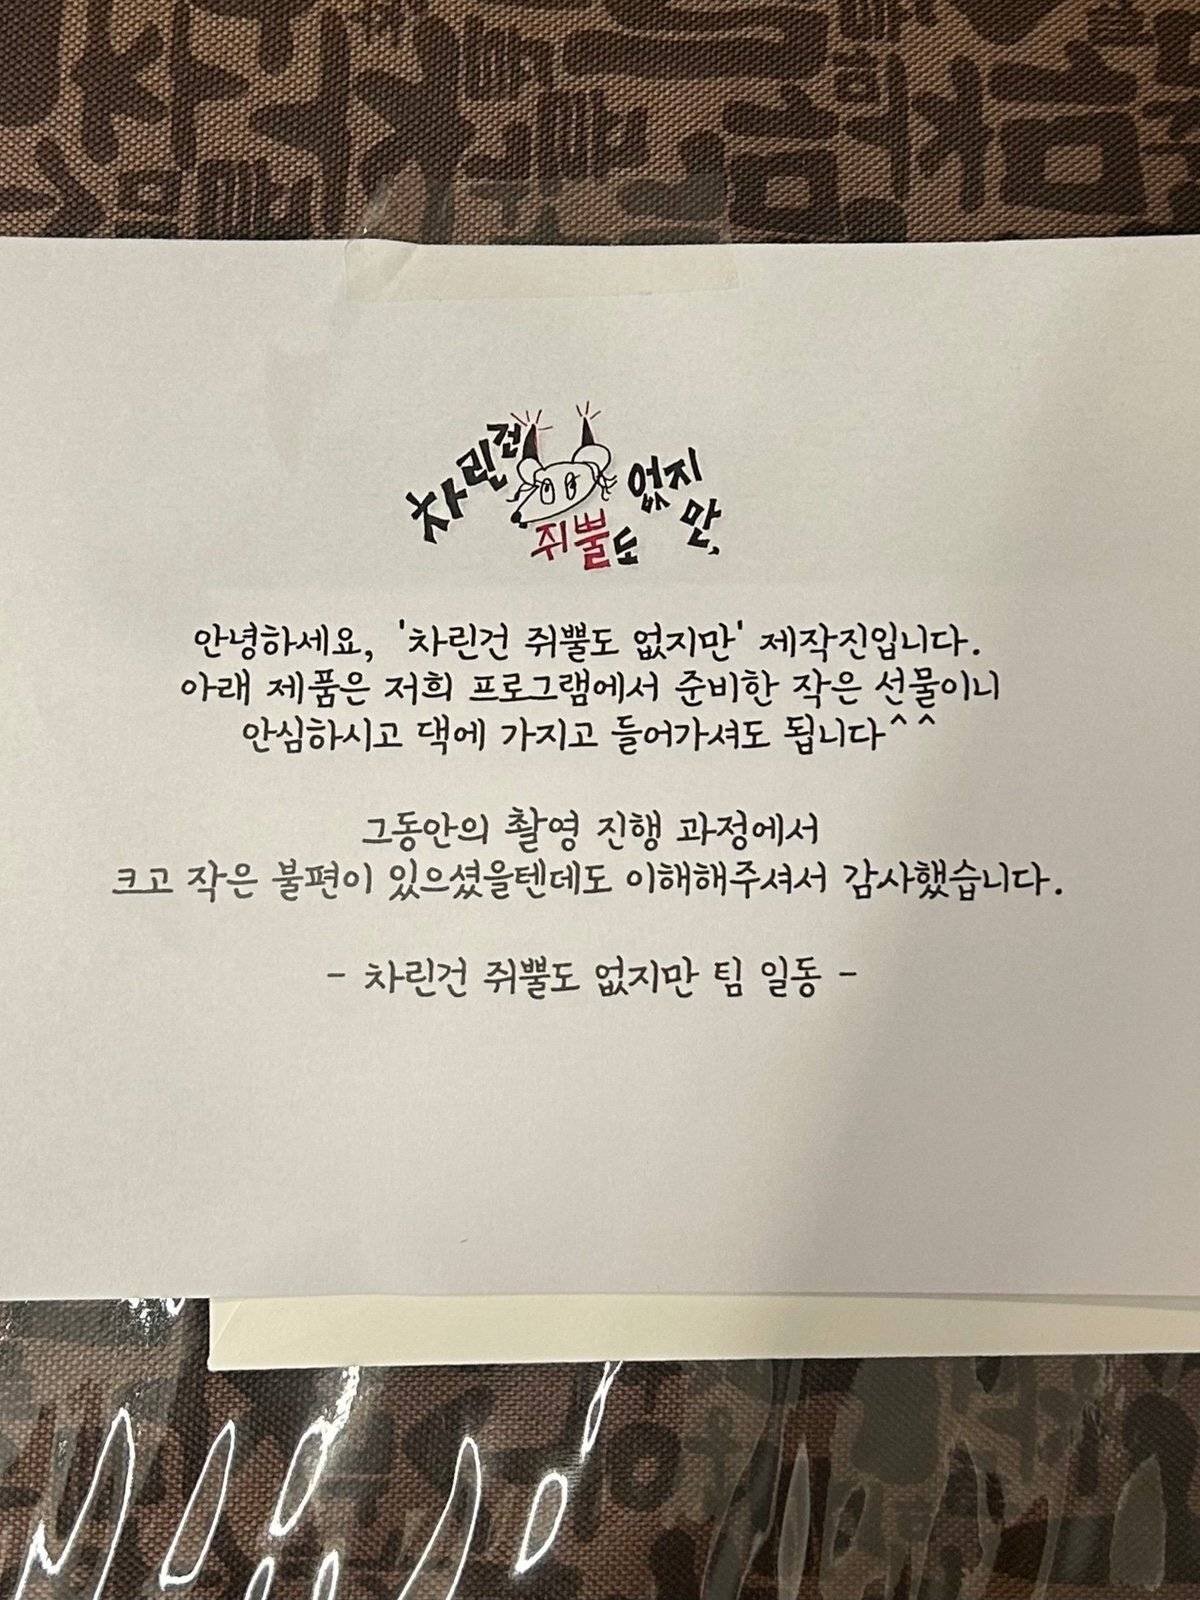 차린건 쥐뿔도 없지만,
안녕하세요, '차린건 쥐뿔도 없지만' 제작진입니다.
아래 제품은 저희 프로그램에서 준비한 작은 선물이니
안심하시고 댁에 가지고 들어가셔도 됩니다^^
그동안의 촬영 진행 과정에서
크고 작은 불편이 있으셨을텐데도 이해해주셔서 감사했습니다.
- 차린건 쥐뿔도 없지만 팀 일동 -